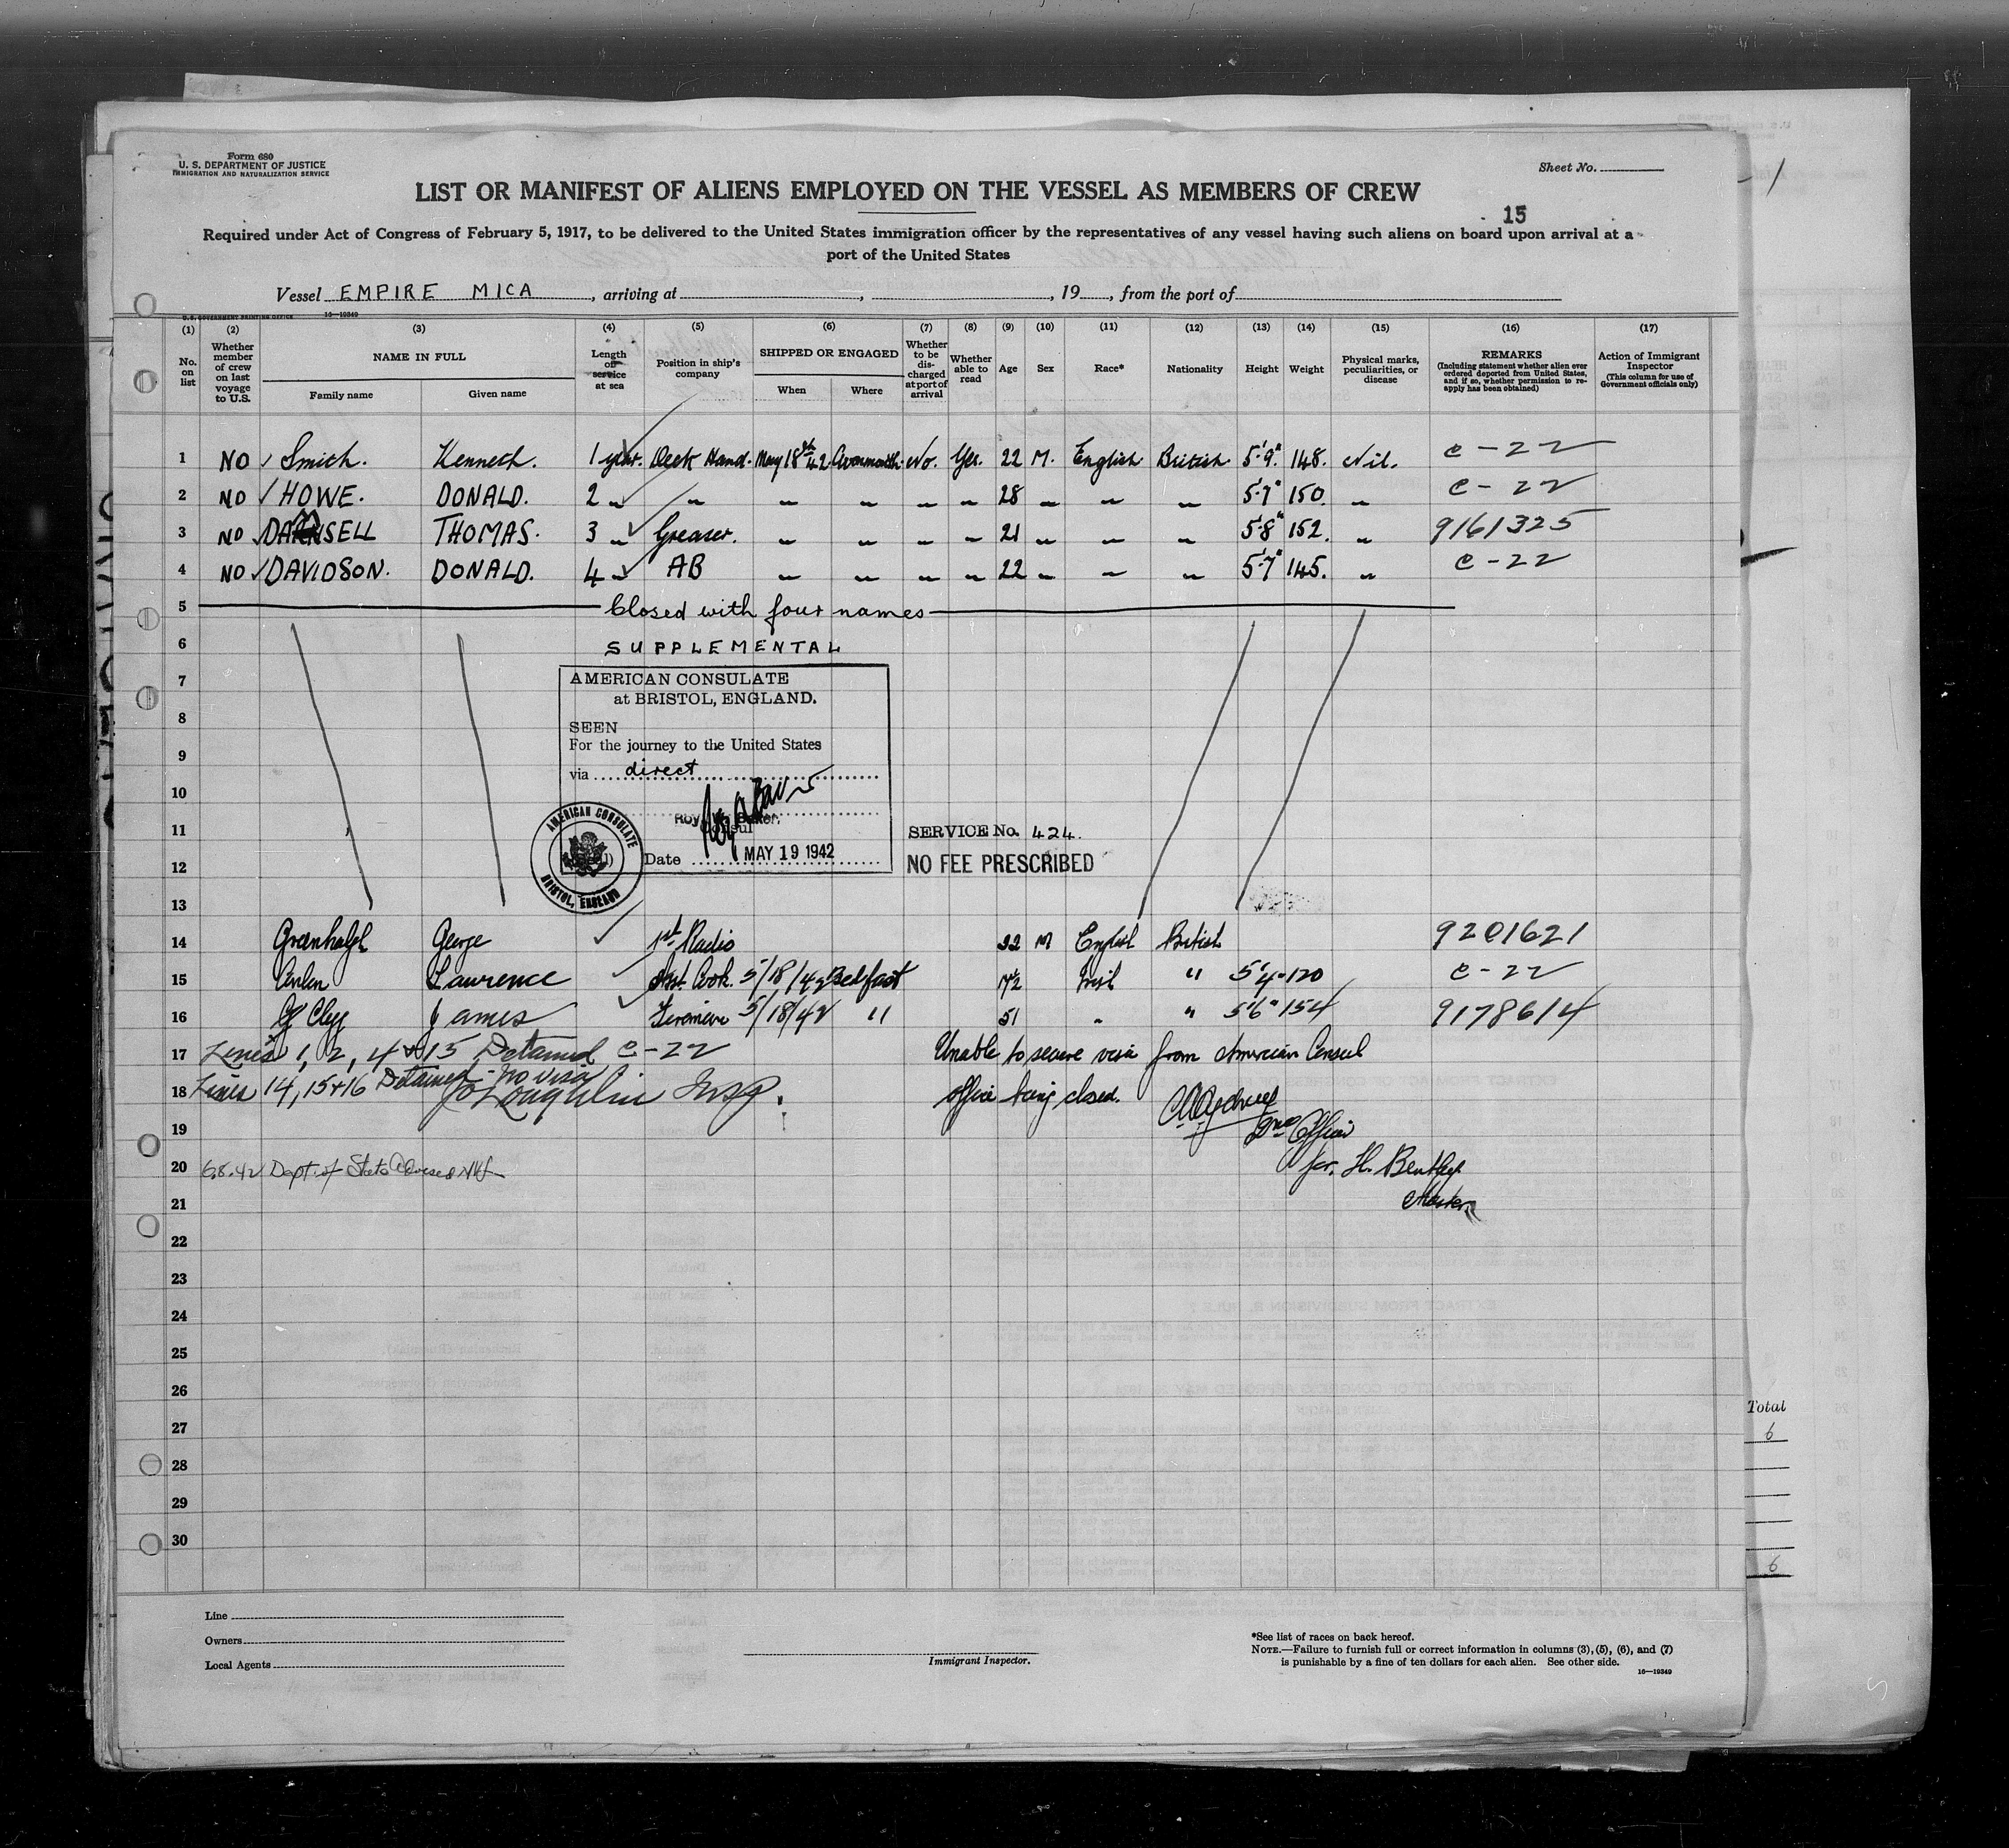 Form 680
U. S. DEPARTMENT OF JUSTICE
IMMIGRATION AND NATURALIZATION SERVICE
Sheet No.
LIST OR MANIFEST OF ALIENS EMPLOYED ON THE VESSEL AS MEMBERS OF CREW
15
Required under Act of Congress of February 5, 1917, to be delivered to the United States immigration officer by the representatives of any vessel having such aliens on board upon arrival at a
port of the United States
Vessel EMPIRE MICA, arriving at , , 19 , from the port of
U. S. GOVERNMENT PRINTING OFFICE 16—19349
(1) (2) (3) (4) (5) (6) (7) (8) (9) (10) (11) (12) (13) (14) (15) (16) (17)
No. on list
Whether member of crew on last voyage to U.S.
NAME IN FULL
Family name
Given name
Length of service at sea
Position in ship's company
SHIPPED OR ENGAGED
When
Where
Whether to be discharged at port of arrival
Whether able to read
Age
Sex
Race*
Nationality
Height
Weight
Physical marks, peculiarities, or disease
REMARKS
(Including statement whether alien ever ordered deported from United States, and if so, whether permission to reapply has been obtained)
Action of Immigrant Inspector
(This column for use of Government officials only)
1 NO Smith. Kenneth. 1 year. Deck Hand. May 18th 42 Avonmouth No. Yes. 22 M. English British 5'9" 148. Nil. C-22
2 NO HOWE. DONALD. 2 " " " " " " 28 " " " 5'7" 150. " C-22
3 NO DANSELL THOMAS. 3 " Greaser. " " " " 21 " " " 5'8" 152. " 9161325
4 NO DAVIDSON. DONALD. 4 " AB " " " " 22 " " " 5'7" 145. " C-22
5 Closed with four names
6 SUPPLEMENTAL
7 AMERICAN CONSULATE
at BRISTOL, ENGLAND.
8 SEEN
For the journey to the United States
9 via direct
10
11 Consul
SERVICE No. 424.
12 Date MAY 19 1942
NO FEE PRESCRIBED
AMERICAN CONSULATE
BRISTOL, ENGLAND
13
14 Greenhalgh George 1st Radio 22 M English British 9201621
15 Lawrence Asst. Cook. 5/18/42 Belfast Irish " 5'4" 120 C-22
16 James Fireman 5/18/42 " 51 " " 5'6" 154 9178614
17 Lines 1, 2, 4 & 15 Detained C-22
Unable to secure visa from American Consul
18 Lines 14, 15 + 16 Detained - No visa
office being closed.
J O'Loughlin Insp.
19 2nd Officer
20 6.8.42 Dept. of State Advised
for. H. Bentley
21 Master
22
23
24
25
26
27
28
29
30
Total
6
6
Line
Owners
Local Agents
Immigrant Inspector.
*See list of races on back hereof.
NOTE.—Failure to furnish full or correct information in columns (3), (5), (6), and (7)
is punishable by a fine of ten dollars for each alien. See other side.
16—19349